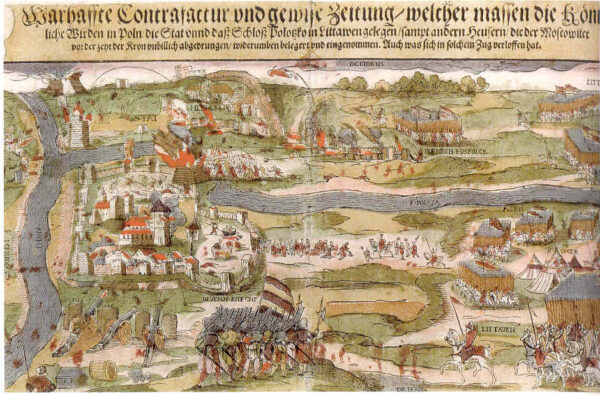 Warhaffte Contrafactur vnd gewise Zeitung/ welcher massen die Kön
liche Wirden in Poln die Stat vnnd daß Schloß Polotzko in Littawen gelegen/ sampt andern Heusern/ die der Moscowiter
vor der zeyt der Kron vnbillich abgedrungen/ widerumben belegert vnd eingenommen. Auch was sich in solchem Zug verloffen hat.
OCCIDENS
LITT
STAT
DEUTSCH KNECHT
LITTAVEN
ORIENS